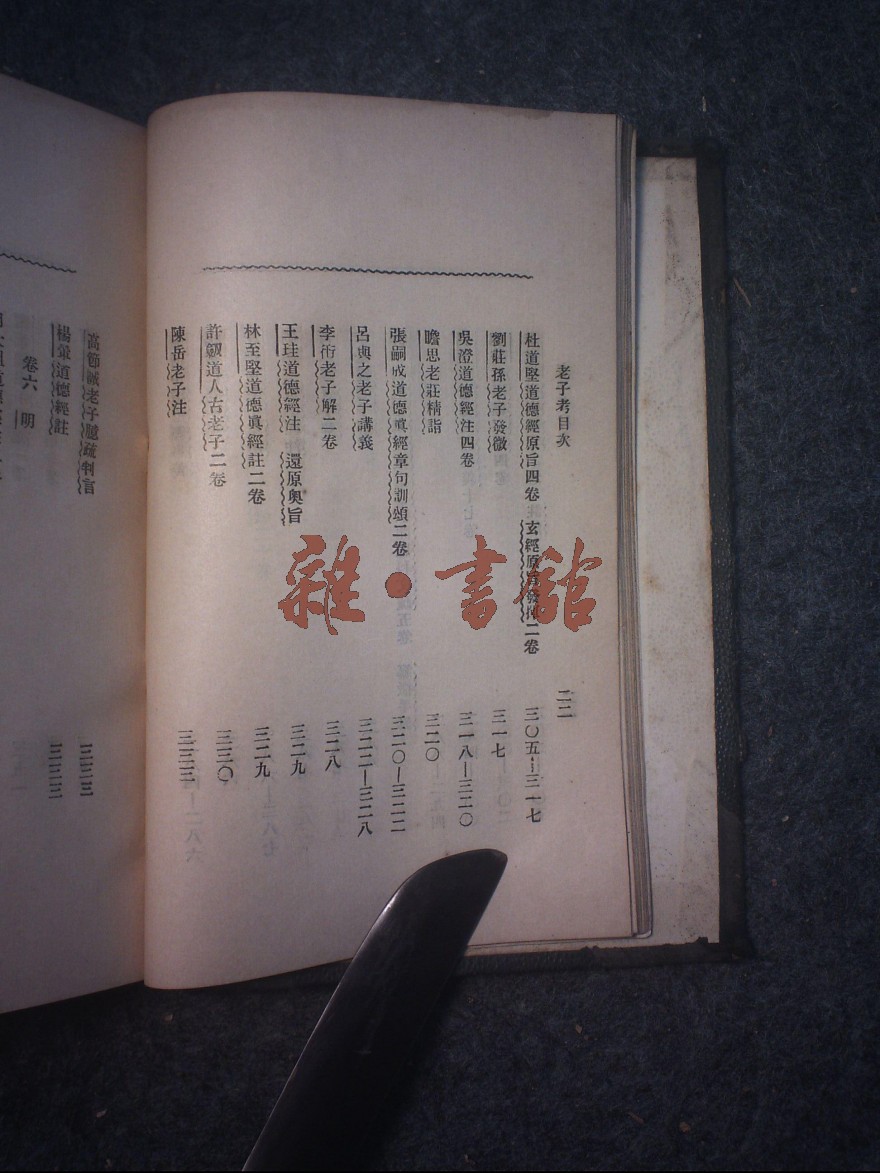 老子考目次 二二
杜道堅道德經原旨四卷 玄經原旨發揮二卷 三〇五—三一七
劉莊孫老子發微 三一七
吳澄道德經注四卷 三一八—三二〇
瞻思老莊精詣 三二〇
張嗣成道德眞經章句訓頌二卷 三二〇—三二二
呂與之老子講義 三二二—三二八
李衎老子解二卷 三二八
王珪道德經注 還原奧旨 三二九
林至堅道德眞經註二卷 三二九
許劒道人古老子二卷 三三〇
陳岳老子注 三三三
高節誠老子隨疏判言 三三三
楊翬道德經註 三三三
卷六 明
雜·書館